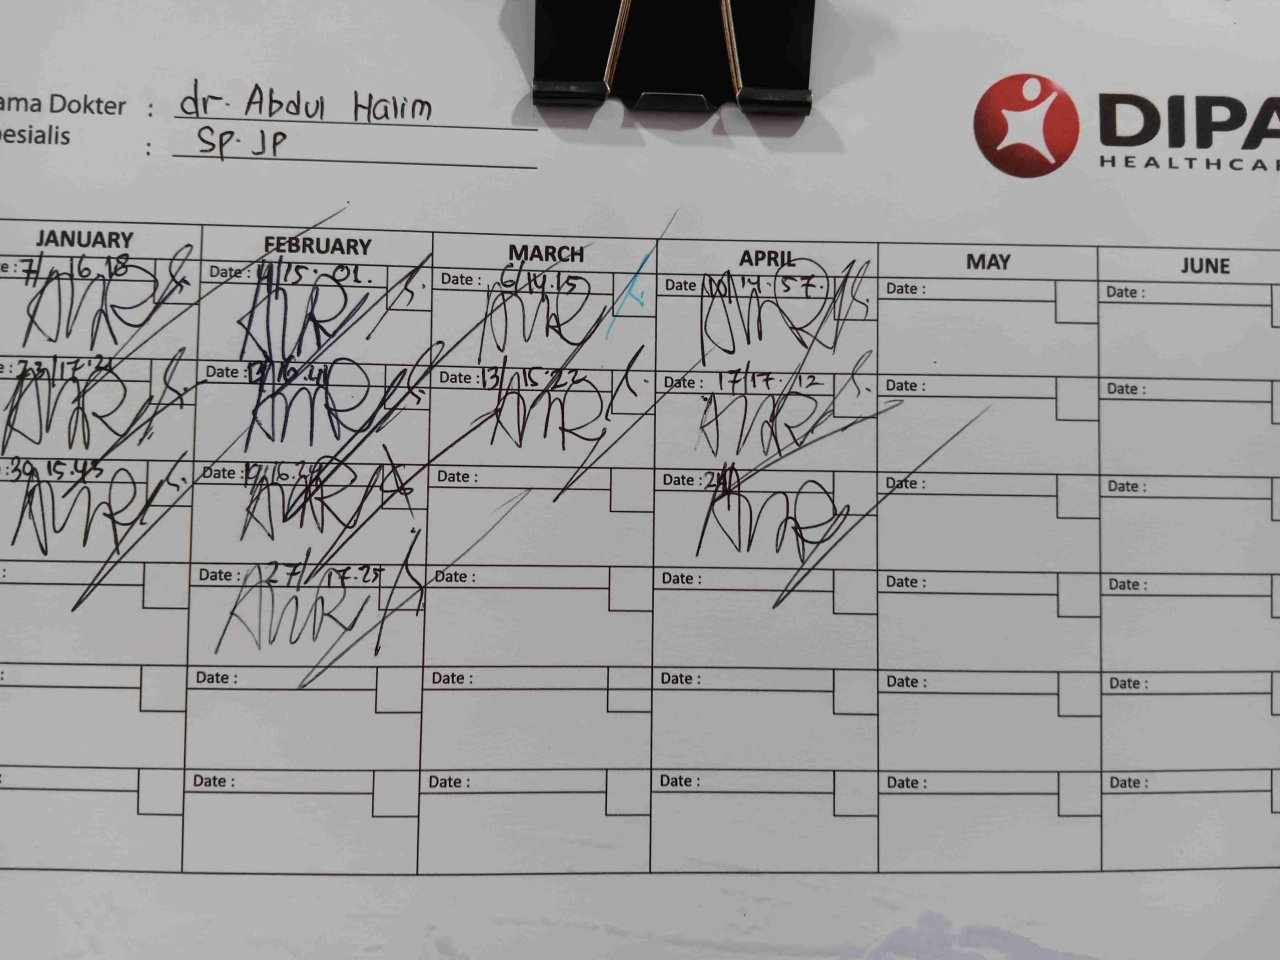 ama Dokter : dr. Abdul Halim
esialis : Sp. JP
DIPA
HEALTHCA
JANUARY FEBRUARY MARCH APRIL MAY JUNE
e : 7/ 16.18 Date : 15.01. Date : 6/14.15 Date 14.57. Date : Date :
Date : Date : 13/ 15.22 Date : 17/17.12 Date : Date :
: 30 15.43 Date : Date : Date : Date : Date :
: Date : 27/ 17.25 Date : Date : Date : Date :
: Date : Date : Date : Date : Date :
: Date : Date : Date : Date : Date :